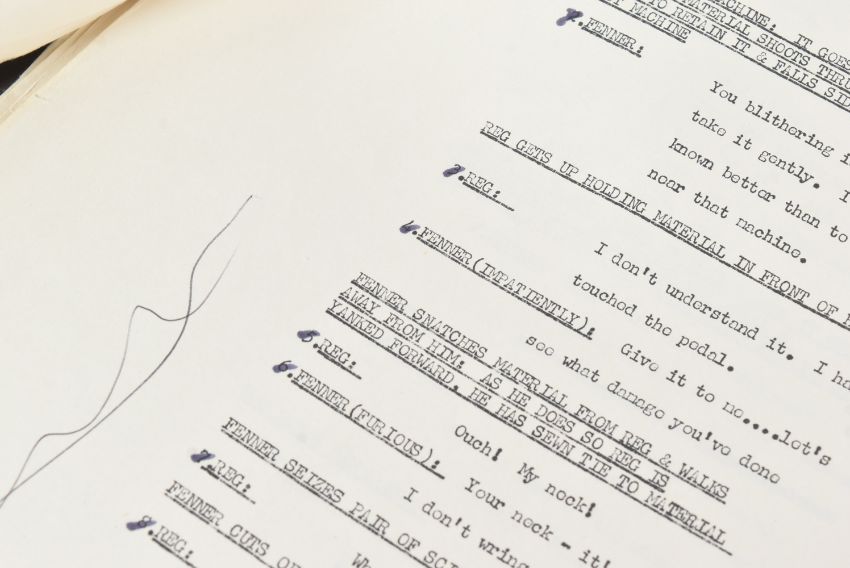 MACHINE: IT GOES
MATERIAL SHOOTS THRU
TO RETAIN IT & FALLS
MACHINE
1.FENNER:
You blithering
take it gently. I
known better than to
near that machine.
REG GETS UP HOLDING MATERIAL IN FRONT OF
2.REG:
I don't understand it. I
touched the pedal.
4.FENNER(IMPATIENTLY):
Give it to me....let's
see what damage you've done
FENNER SNATCHES MATERIAL FROM REG & WALKS
AWAY FROM HIM: AS HE DOES SO REG IS
YANKED FORWARD. HE HAS SEWN TIE TO MATERIAL
5.REG:
Ouch! My neck!
6.FENNER(FURIOUS):
Your neck - it!
I don't wring
FENNER SEIZES PAIR OF
7.REG:
FENNER CUTS
8.REG: